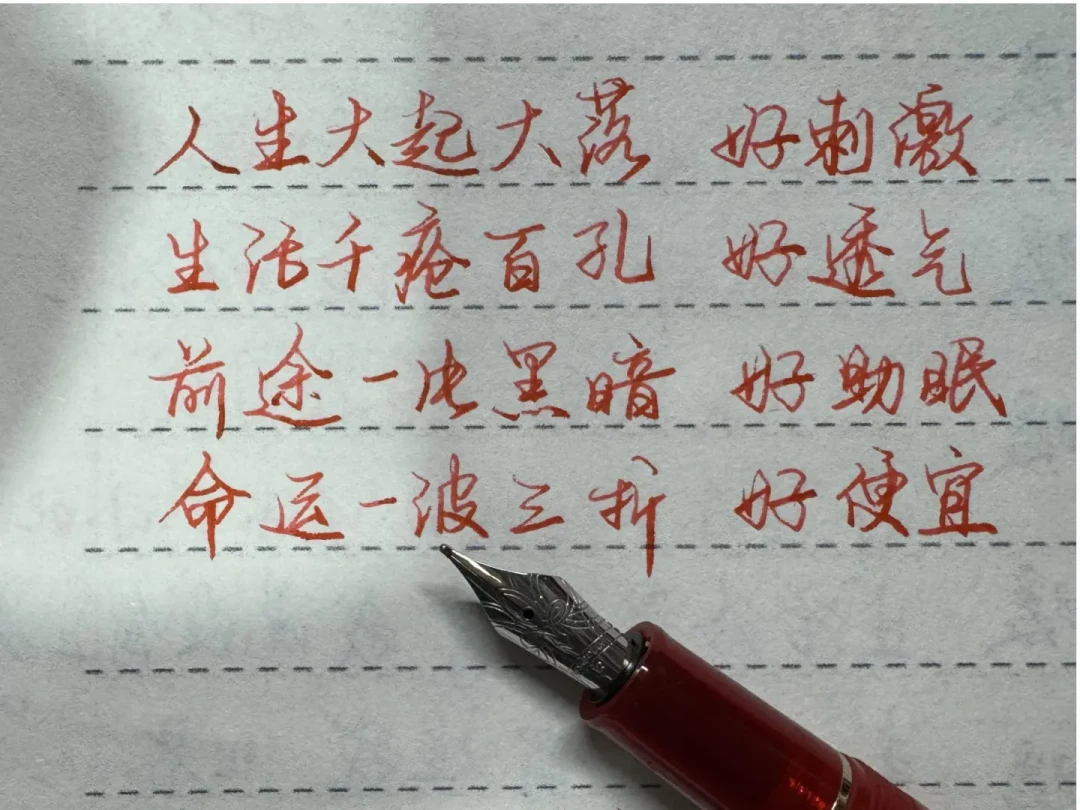 人生大起大落 好刺激
生活千疮百孔 好透气
前途一片黑暗 好助眠
命运一波三折 好便宜